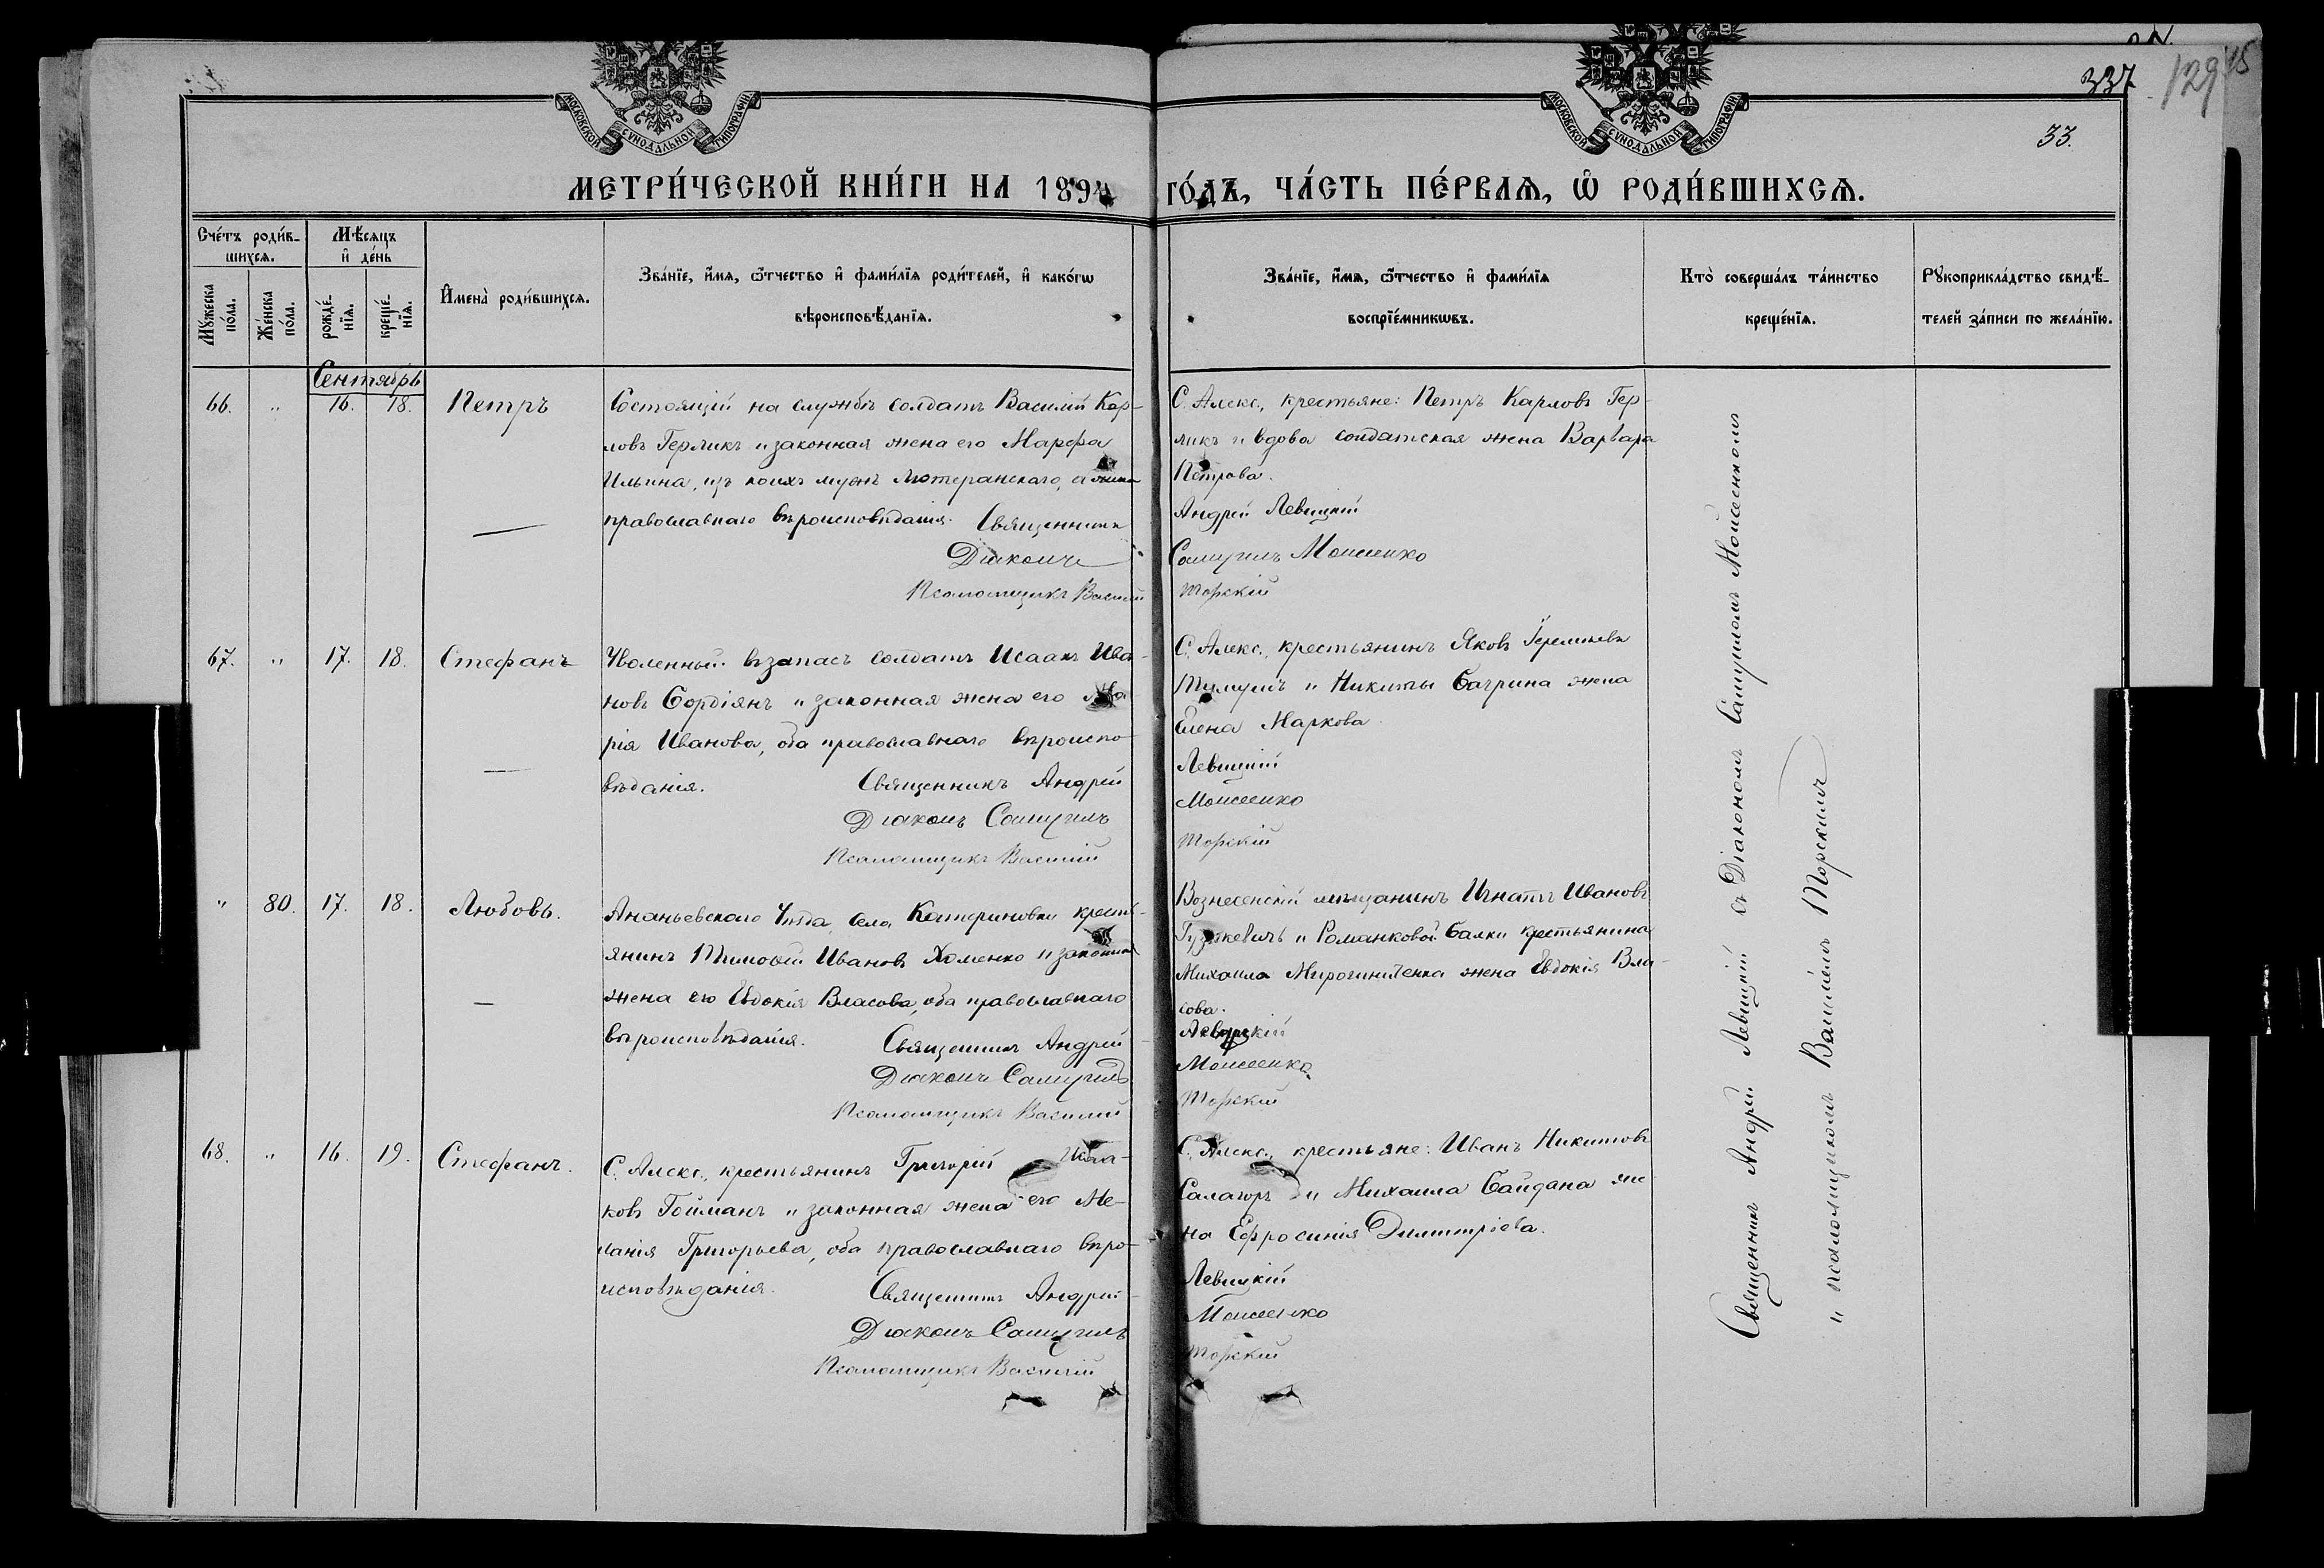 337
129
15
33.
МОСКОВСКОЙ СѴНОДАЛЬНОЙ ТИПОГРАФІИ
МОСКОВСКОЙ СѴНОДАЛЬНОЙ ТИПОГРАФІИ
МЕТРИ́ЧЕСКОЙ КНИ́ГИ НА 1894 ГО́ДЪ, ЧА́СТЬ ПЕ́РВАѦ, Ѡ҆ РОДИ́ВШИХСѦ.
Сче́тъ роди́в-
шихсѧ.
Мꙋ́жеска по́ла.
Же́нска по́ла.
Мѣ́сѧцъ
и҆ де́нь
рожде́-нїѧ.
креще́-нїѧ.
И҆мена̀ роди́вшихсѧ.
Зва́нїе, и҆́мѧ, ѻ҆́тчество и҆ фами́лїѧ роди́телей, и҆ како́гѡ
вѣроисповѣ́данїѧ.
Зва́нїе, и҆́мѧ, ѻ҆́тчество и҆ фами́лїѧ
воспрїе́мникѡвъ.
Кто̀ соверша́лъ та́инство
креще́нїѧ.
Рꙋкоприкла́дство свидѣ́-
телей за́писи по жела́нїю.
Сентябрь
66. " 16. 18. Петръ
Состоящій на службѣ солдатъ Василій Кар-
ловъ Герликъ и законная жена его Марфа
Ильина, изъ коихъ мужъ лютеранскаго, а жена
православнаго вѣроисповѣданія. Священникъ
Діаконъ
Псаломщикъ Василій
С. Алекс., крестьяне: Петръ Карловъ Гер-
ликъ и вдова солдатская жена Варвара
Петрова.
Андрей Левицкій
Самуилъ Моисеенко
Торскій
67. " 17. 18. Стефанъ
Уволенный въ запасъ солдатъ Исаакъ Ива-
новъ Бордіянъ и законная жена его Ма
рія Иванова, оба православнаго вѣроиспо-
вѣданія. Священникъ Андрей
Діаконъ Самуилъ
Псаломщикъ Василій
С. Алекс., крестьянинъ Яковъ
и Никиты Багрина жена
Елена Маркова.
Левицкій
Моисеенко
Торскій
" 80. 17. 18. Любовь.
Ананьевскаго Уѣзда, села Катериновки кресть-
янинъ Тимофей Ивановъ Хоменко и законная
жена его Евдокія Власова, оба православнаго
вѣроисповѣданія. Священникъ Андрей
Діаконъ Самуилъ
Псаломщикъ Василій
Вознесенскій мѣщанинъ Игнатъ Ивановъ
и Романковой Балки крестьянина
Михаила Мирошниченка жена Евдокія Вла-
сова.
Левицкій
Моисеенко
Торскій
68. " 16. 19. Стефанъ.
С. Алекс., крестьянинъ Григорій Исаа-
ковъ Гойманъ и законная жена его Ме-
ланія Григорьева, оба православнаго вѣро-
исповѣданія. Священникъ Андрей
Діаконъ Самуилъ
Псаломщикъ Василій
С. Алекс., крестьяне: Иванъ Никитовъ
Салагоръ и Михаила Байдана же-
на Ефросинія Димитріева.
Левицкій
Моисеенко
Торскій
Священникъ Андрей Левицкій съ Діакономъ Самуиломъ Мойсеенкомъ
и псаломщикомъ Василіемъ Торскимъ